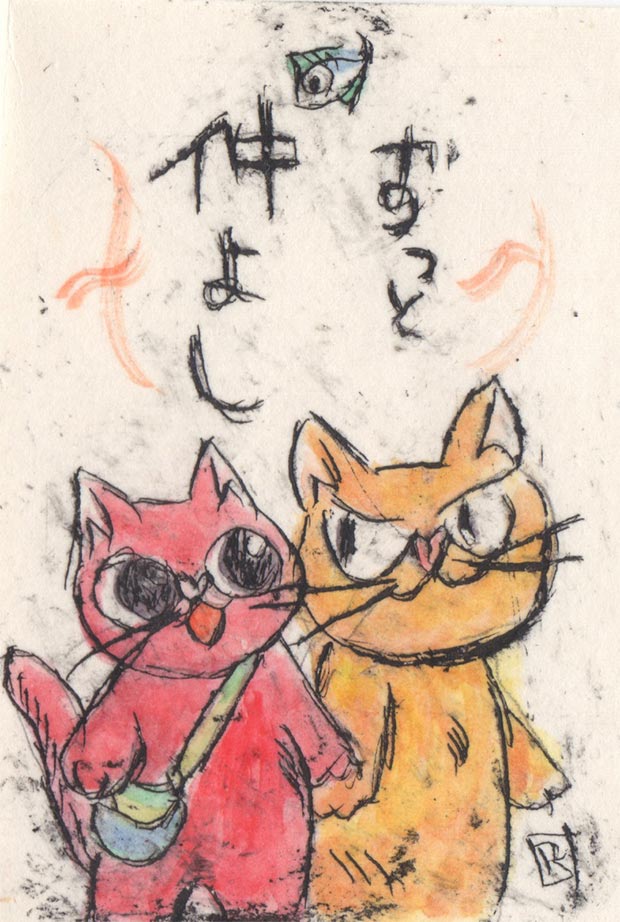 ずっと
仲よし